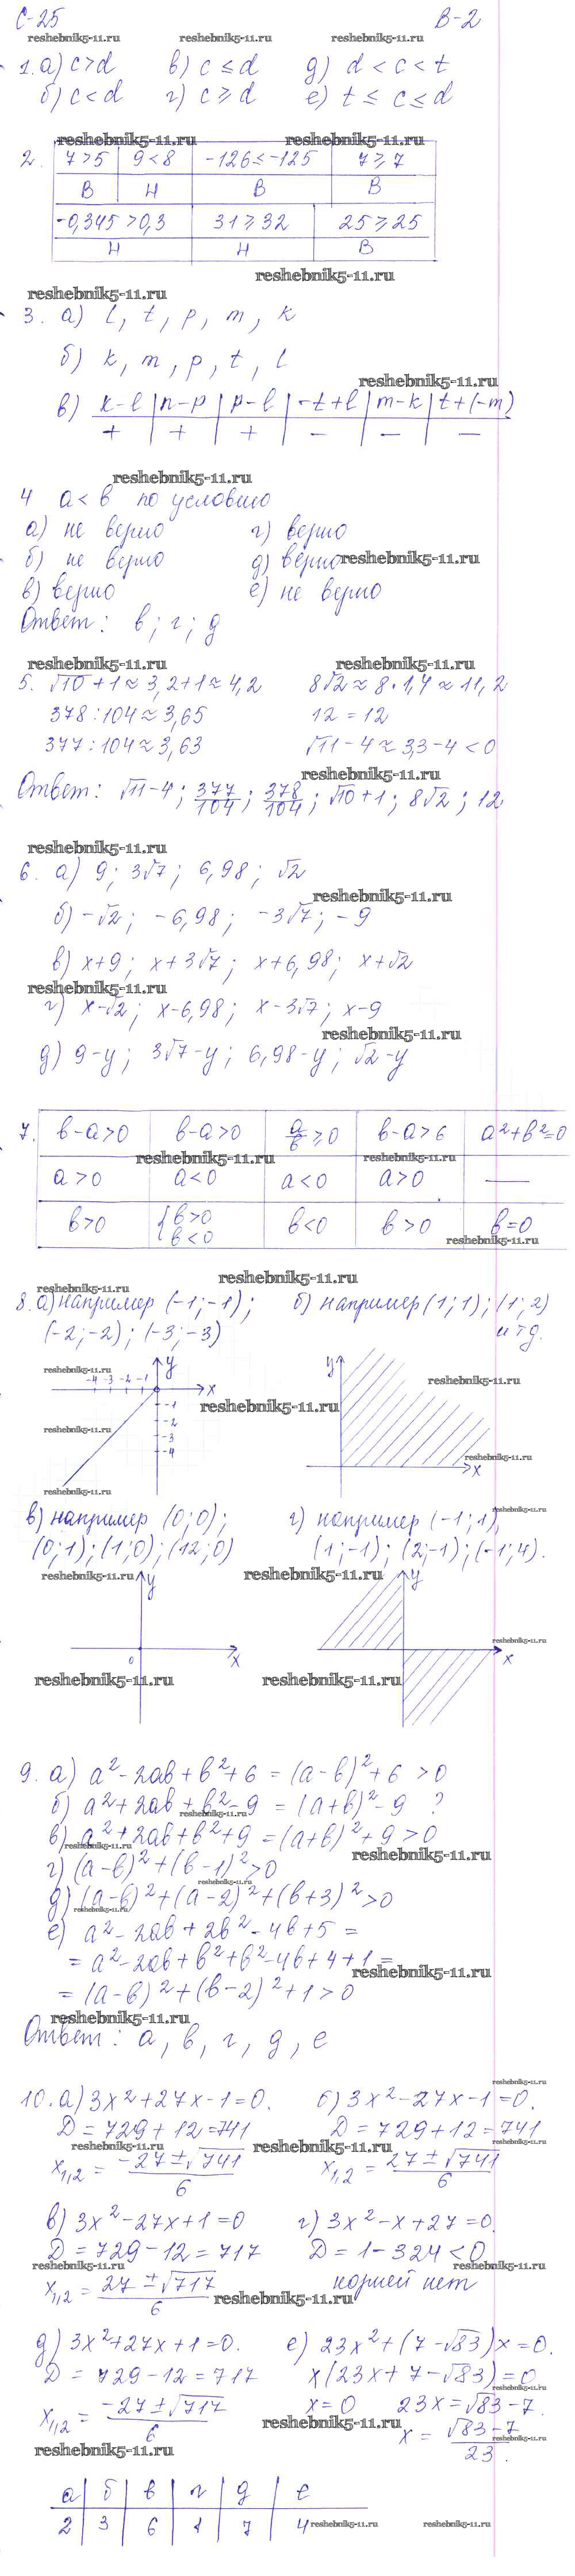 С-25 В-2
reshebnik5-11.ru reshebnik5-11.ru reshebnik5-11.ru
1. а) c > d в) c ≤ d д) d < c < t
б) c < d г) c ≥ d е) t ≤ c ≤ d
reshebnik5-11.ru reshebnik5-11.ru
2. 7>5 9<8 -126≤-125 7≥7
В Н В В
-0,345>0,3 31≥32 25≥25
Н Н В
reshebnik5-11.ru
reshebnik5-11.ru
3. а) l, t, p, m, k
б) k, m, p, t, l
reshebnik5-11.ru
в) k-l n-p p-l -t+l m-k t+(-m)
+ + + - - -
reshebnik5-11.ru
4 a < b по условию
а) не верно г) верно
б) не верно д) верно reshebnik5-11.ru
в) верно е) не верно
Ответ: в; г; д
reshebnik5-11.ru reshebnik5-11.ru
5. √10+1≈3,2+1≈4,2 8√2≈8·1,4≈11,2
378:104≈3,65 12=12
377:104≈3,63 √11-4≈3,3-4<0
reshebnik5-11.ru
Ответ: √11-4; 377/104; 378/104; √10+1; 8√2; 12
reshebnik5-11.ru
6. а) 9; 3√7; 6,98; √2
reshebnik5-11.ru
б) -√2; -6,98; -3√7; -9
в) x+9; x+3√7; x+6,98; x+√2
reshebnik5-11.ru
г) x-√2; x-6,98; x-3√7; x-9
reshebnik5-11.ru
д) 9-y; 3√7-y; 6,98-y; √2-y
7. b-a>0 b-a>0 a/b≥0 b-a>6 a²+b²=0
reshebnik5-11.ru reshebnik5-11.ru
a>0 a<0 a<0 a>0 —
b>0 { b>0 b<0 b<0 b>0 b=0
reshebnik5-11.ru
reshebnik5-11.ru
reshebnik5-11.ru
8. а) например (-1;-1); б) например (1;1); (1;2)
(-2;-2); (-3;-3) и тд.
reshebnik5-11.ru y y
-4 -3 -2 -1 x reshebnik5-11.ru
-1 reshebnik5-11.ru
-2
reshebnik5-11.ru
-3
-4 reshebnik5-11.ru
x
reshebnik5-11.ru
reshebnik5-11.ru
в) например (0;0); г) например (-1;1),
(0;1); (1;0); (12;0) (1;-1); (2;-1); (-1;4).
reshebnik5-11.ru reshebnik5-11.ru
y y
reshebnik5-11.ru
0 x x
reshebnik5-11.ru reshebnik5-11.ru
9. а) a²-2ab+b²+6=(a-b)²+6>0
б) a²+2ab+b²-9=(a+b)²-9 ?
reshebnik5-11.ru
в) a²+2ab+b²+9=(a+b)²+9>0
reshebnik5-11.ru reshebnik5-11.ru
г) (a-b)²+(b-1)²>0
reshebnik5-11.ru
д) (a-b)²+(a-2)²+(b+3)²>0
reshebnik5-11.ru
е) a²-2ab+2b²-4b+5=
=a²-2ab+b²+b²-4b+4+1=
reshebnik5-11.ru
=(a-b)²+(b-2)²+1>0
reshebnik5-11.ru
Ответ: а, в, г, д, е
reshebnik5-11.ru
10. а) 3x²+27x-1=0. б) 3x²-27x-1=0.
D=729+12=741 D=729+12=741
reshebnik5-11.ru reshebnik5-11.ru reshebnik5-11.ru
x₁,₂=(-27±√741)/6 x₁,₂=(27±√741)/6
в) 3x²-27x+1=0 г) 3x²-x+27=0.
D=729-12=717 D=1-324<0
reshebnik5-11.ru reshebnik5-11.ru
x₁,₂=(27±√717)/6 корней нет
reshebnik5-11.ru
д) 3x²+27x+1=0. е) 23x²+(7-√83)x=0.
D=729-12=717 x(23x+7-√83)=0
reshebnik5-11.ru
x₁,₂=(-27±√717)/6 x=0 23x=√83-7.
reshebnik5-11.ru reshebnik5-11.ru
x=(√83-7)/23.
reshebnik5-11.ru
а б в г д е
2 3 6 1 7 4
reshebnik5-11.ru reshebnik5-11.ru